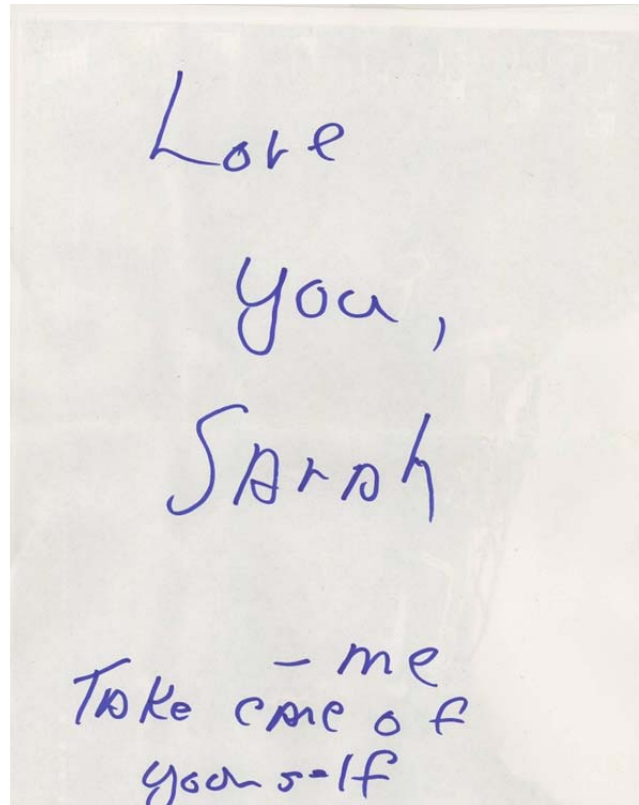 Love
you,
Sarah
- me
Take care of
yourself